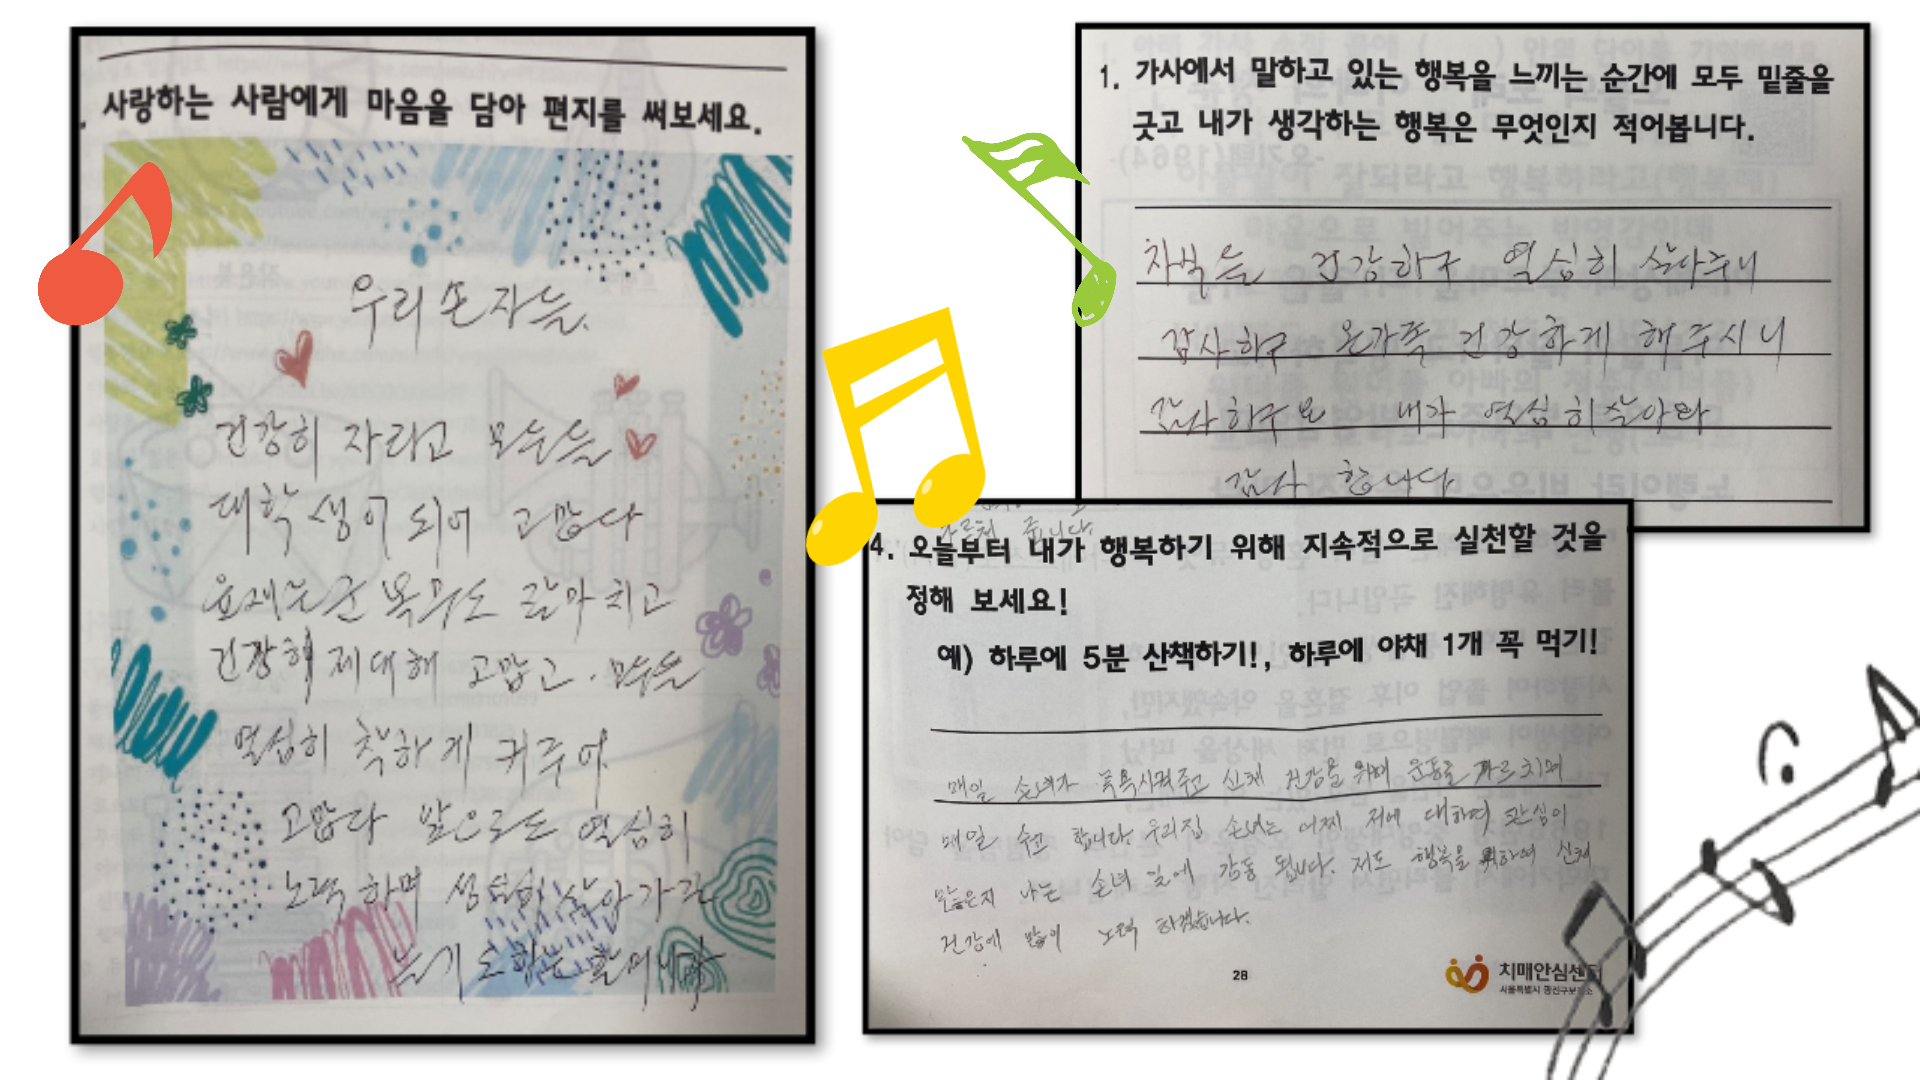 사랑하는 사람에게 마음을 담아 편지를 써보세요.
우리 손자들
건강히 자라고 모두들
대학생이 되어 고맙다
군 복무도 잘 마치고
건강히 제대해 고맙고. 모두들
열심히 착하게 커주어
고맙다 앞으로도 열심히
노력하며 성실히 살아가라
늘 기도하는 할머니가
1. 가사에서 말하고 있는 행복을 느끼는 순간에 모두 밑줄을
긋고 내가 생각하는 행복은 무엇인지 적어봅니다.
자식들 건강하구 열심히 살아주니
감사하구 온가족 건강하게 해주시니
감사하구요 내가 열심히 살아와
감사 합니다
줍니다.
4. 오늘부터 내가 행복하기 위해 지속적으로 실천할 것을
정해 보세요!
예) 하루에 5분 산책하기!, 하루에 야채 1개 꼭 먹기!
매일 손녀가 목욕시켜주고 신체 건강을 위해 운동을 가르치며
매일 수고 합니다. 우리집 손녀는 어찌 저에 대하여 관심이
많은지 나는 손녀 일에 감동 됩니다. 저도 행복을 위하여 신체
건강에 많이 노력 하겠습니다.
28
치매안심센터
서울특별시 광진구보건소